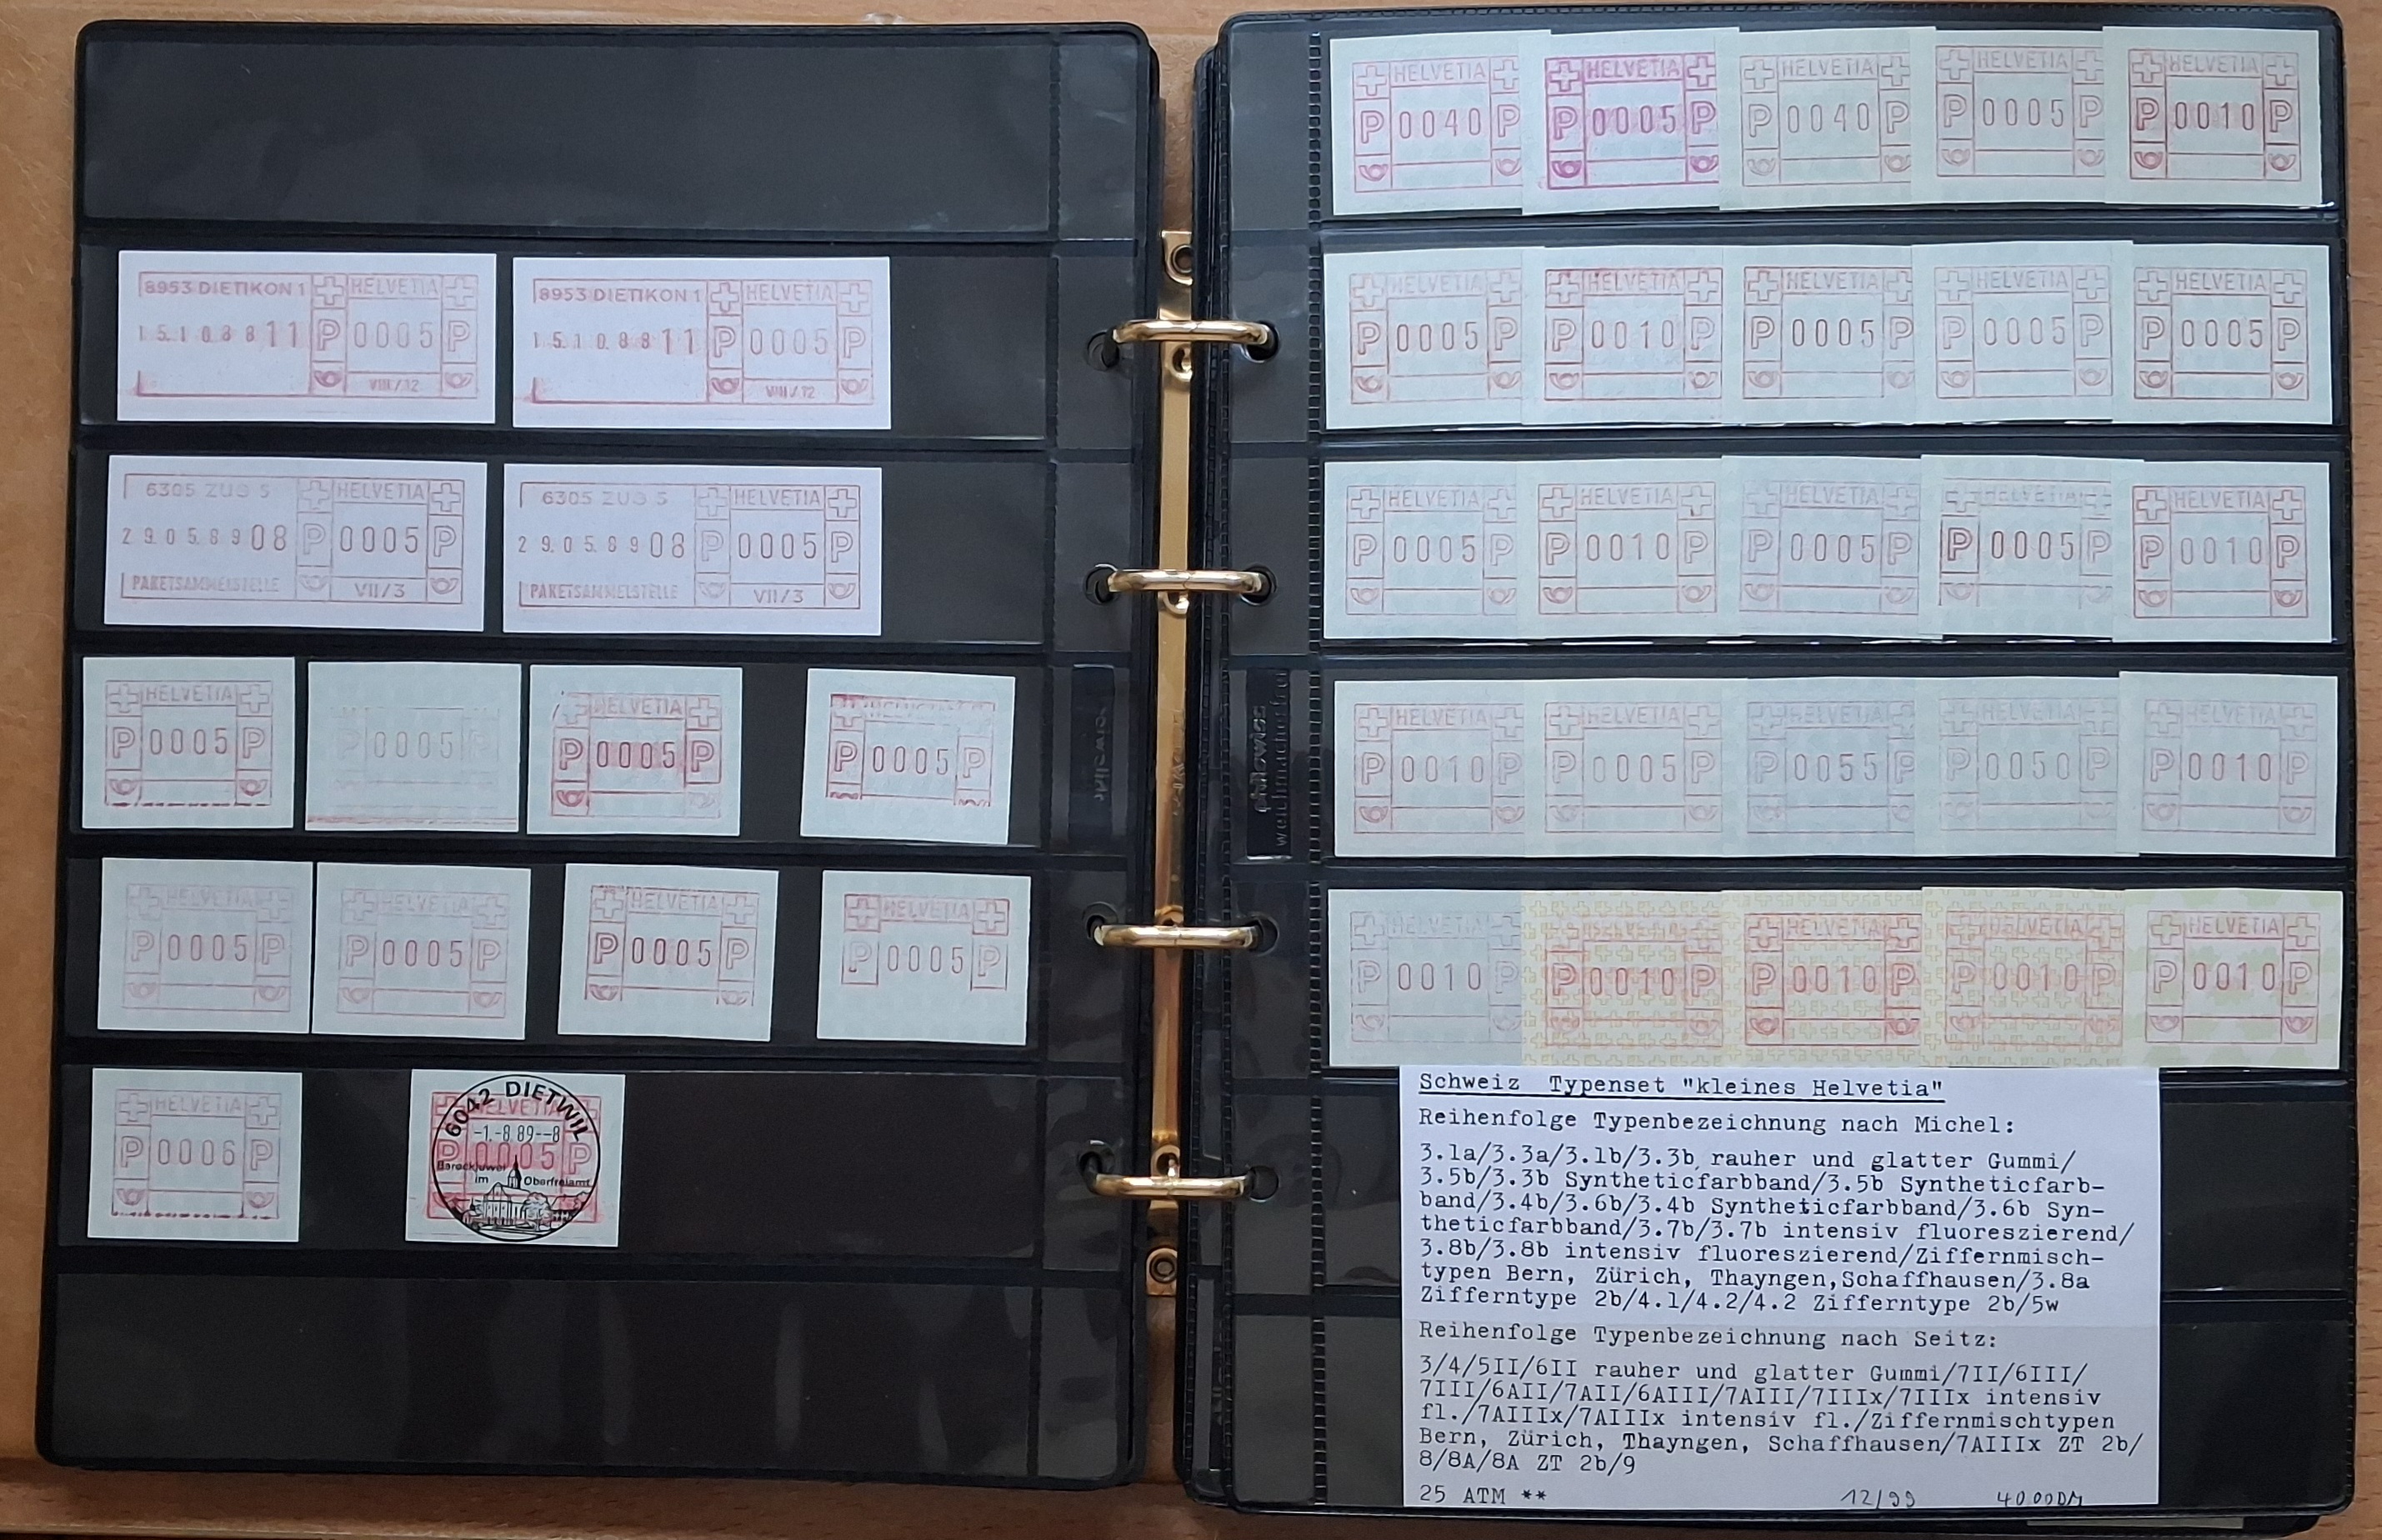 8953 DIETIKON 1 HELVETIA
15.10.88 11 P 0005 P
VIII/12
8953 DIETIKON 1 HELVETIA
15.10.88 11 P 0005 P
VIII/12
6305 ZUG 5 HELVETIA
29.05.89 08 P 0005 P
PAKETSAMMELSTELLE VII/3
6305 ZUG 5 HELVETIA
29.05.89 08 P 0005 P
PAKETSAMMELSTELLE VII/3
HELVETIA
P 0005 P
0005
HELVETIA
P 0005 P
P 0005 P
HELVETIA
P 0005 P
HELVETIA
P 0005 P
HELVETIA
P 0005 P
HELVETIA
P 0005 P
HELVETIA
P 0006 P
6042 DIETWIL
HELVETIA
-1.-8.89--8
P 0005 P
Barockjuwel
im Oberfreiamt
HELVETIA
P 0040 P
HELVETIA
P 0005 P
HELVETIA
P 0040 P
HELVETIA
P 0005 P
HELVETIA
P 0010 P
HELVETIA
P 0005 P
HELVETIA
P 0010 P
HELVETIA
P 0005 P
HELVETIA
P 0005 P
HELVETIA
P 0005 P
HELVETIA
P 0005 P
HELVETIA
P 0010 P
HELVETIA
P 0005 P
HELVETIA
P 0005 P
HELVETIA
P 0010 P
HELVETIA
P 0010 P
HELVETIA
P 0005 P
HELVETIA
P 0055 P
HELVETIA
P 0050 P
HELVETIA
P 0010 P
HELVETIA
P 0010 P
HELVETIA
P 0010 P
HELVETIA
P 0010 P
HELVETIA
P 0010 P
HELVETIA
P 0010 P
Schweiz Typenset "kleines Helvetia"
Reihenfolge Typenbezeichnung nach Michel:
3.1a/3.3a/3.1b/3.3b rauher und glatter Gummi/
3.5b/3.3b Syntheticfarbband/3.5b Syntheticfarb-
band/3.4b/3.6b/3.4b Syntheticfarbband/3.6b Syn-
theticfarbband/3.7b/3.7b intensiv fluoreszierend/
3.8b/3.8b intensiv fluoreszierend/Ziffernmisch-
typen Bern, Zürich, Thayngen,Schaffhausen/3.8a
Zifferntype 2b/4.1/4.2/4.2 Zifferntype 2b/5w
Reihenfolge Typenbezeichnung nach Seitz:
3/4/5II/6II rauher und glatter Gummi/7II/6III/
7III/6AII/7AII/6AIII/7AIII/7IIIx/7IIIx intensiv
fl./7AIIIx/7AIIIx intensiv fl./Ziffernmischtypen
Bern, Zürich, Thayngen, Schaffhausen/7AIIIx ZT 2b/
8/8A/8A ZT 2b/9
25 ATM ** 12/99